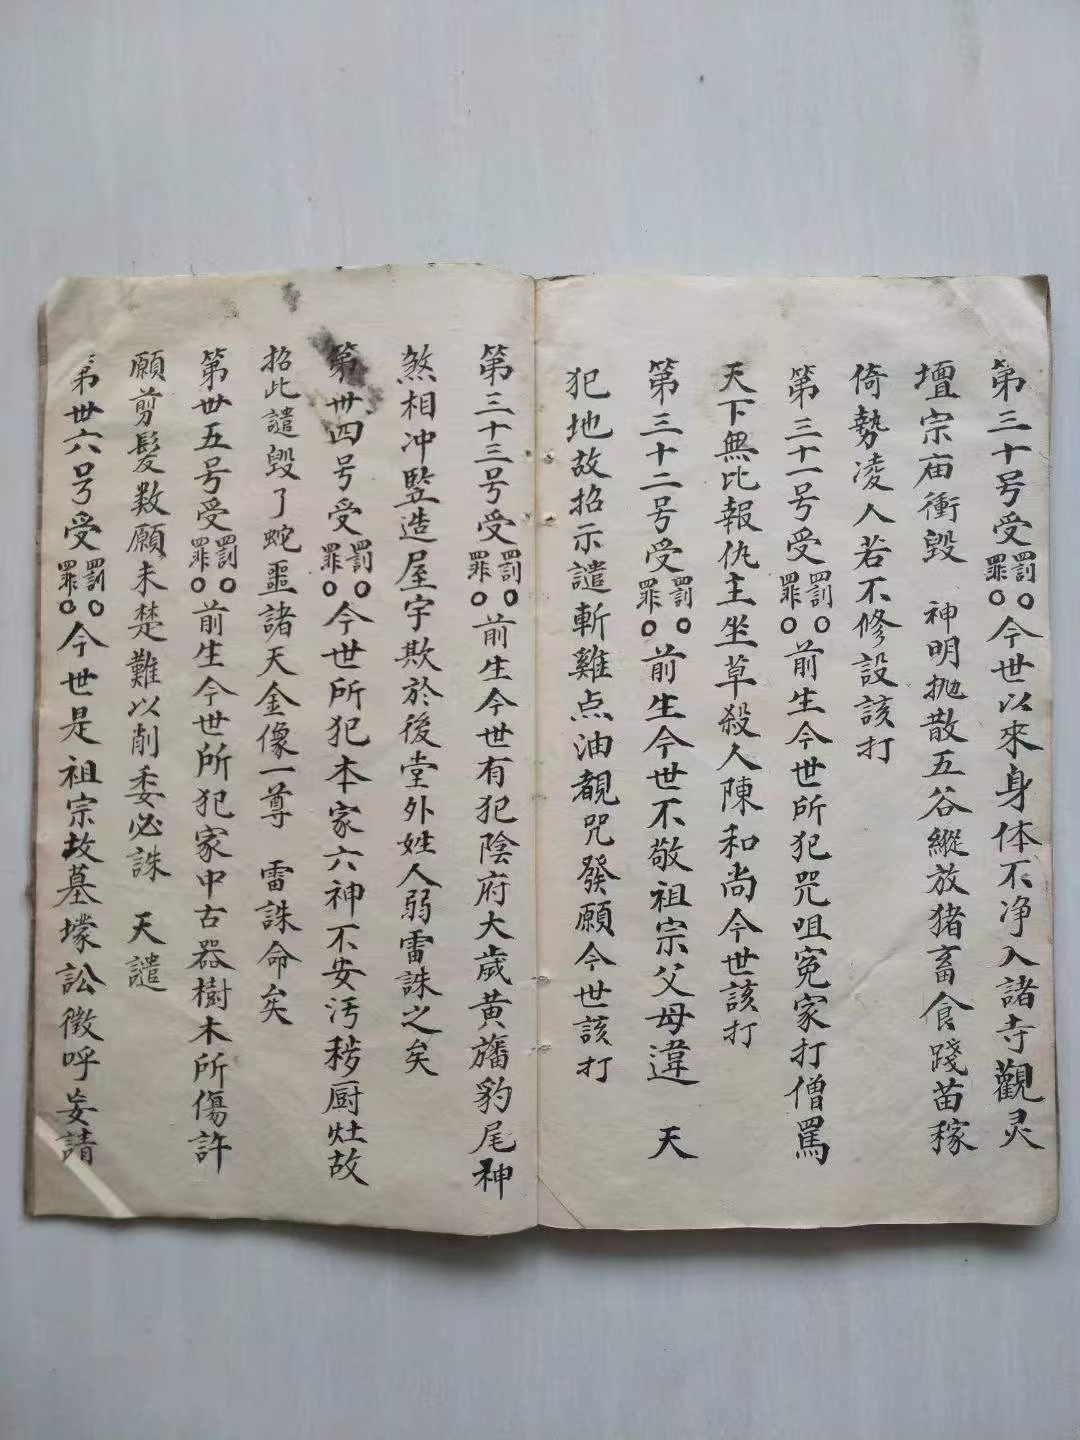 第三十号受罰罪○○今世以來身体不净入諸寺觀灵
壇宗庙衝毁　神明抛散五谷縱放猪畜食踐苗稼
倚勢凌人若不修設該打
第三十一号受罰罪○○前生今世所犯咒咀冤家打僧罵
天下無比報仇主坐草殺人陳和尚今世該打
第三十二号受罰罪○○前生今世不敬祖宗父母違　天
犯地故招示譴斬雞点油覩咒發願今世該打
第三十三号受罰罪○○前生今世有犯陰府大歲黄旛豹尾神
煞相冲竪造屋宇欺於後堂外姓人弱雷誅之矣
第卅四号受罰罪○○今世所犯本家六神不安汚秽厨灶故
招此譴毁了蛇噩諸天金像一尊　雷誅命矣
第卅五号受罰罪○○前生今世所犯家中古器樹木所傷許
願剪髮数願未楚難以削委必誅　天譴
第卅六号受罰罪○○今世是祖宗故墓壕訟徵呼妄請